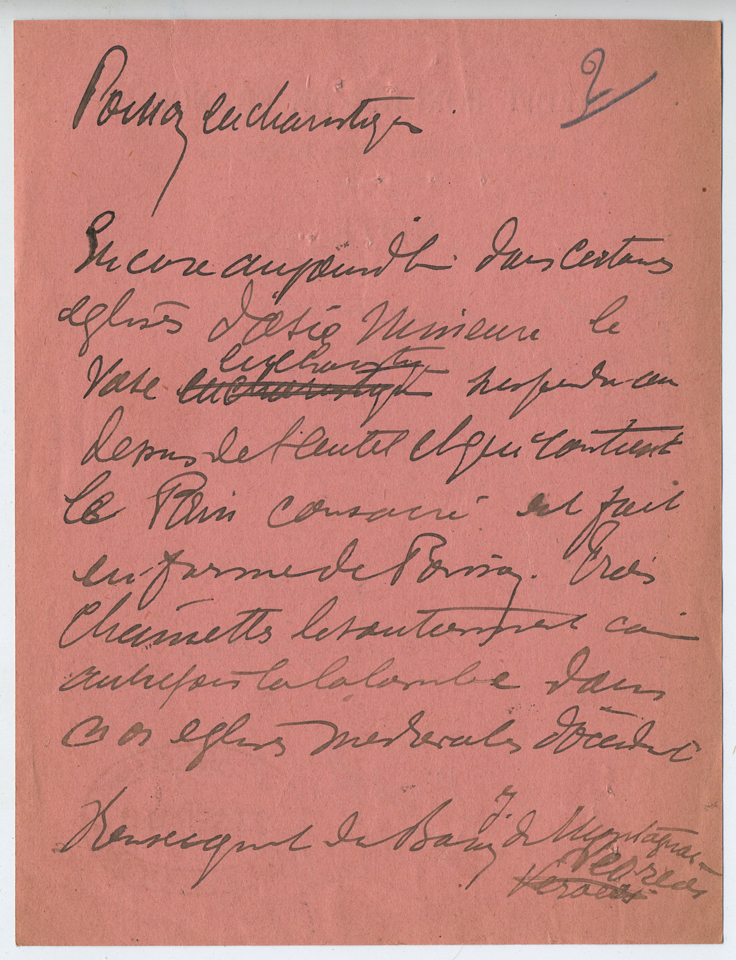 Poisson eucharistique
2
Encore aujourd'hui dans certaines
églises d'Asie Mineure le
eucharistique
Vase eucharistique suspendu au
dessus de l'autel et qui contient
le Pain consacré est fait
en forme de Poisson. Trois
chainettes le soutiennent comme
autrefois la colombe dans
nos églises médiévales d'Occident
Renseignement du Baron J. de